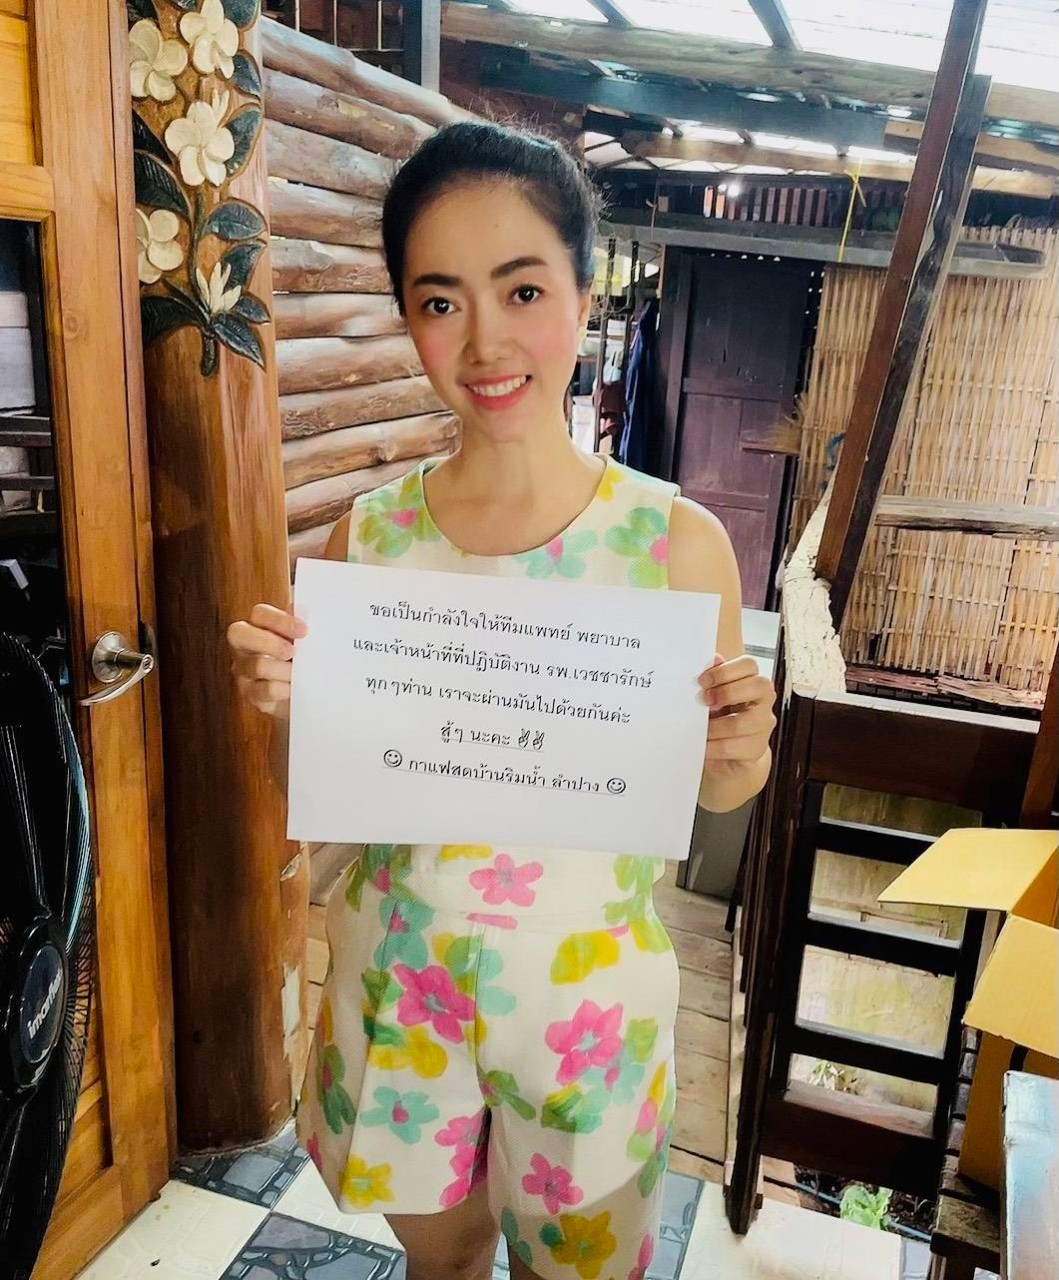 ขอเป็นกำลังใจให้ทีมแพทย์ พยาบาล
และเจ้าหน้าที่ที่ปฏิบัติงาน รพ.เวชชารักษ์
ทุกๆท่าน เราจะผ่านมันไปด้วยกันค่ะ
สู้ๆ นะคะ ✌✌
☺ กาแฟสดบ้านริมน้ำ ลำปาง ☺